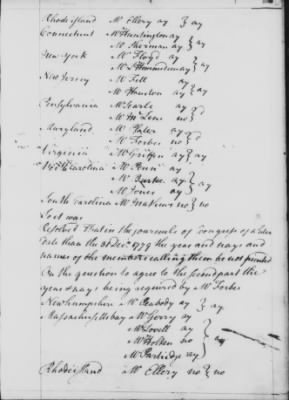 Rhode island Mr Ellery ay } ay
Connecticut Mr Huntington ay } ay
Mr Sherman ay
New York Mr Floyd ay } ay
Mr L'Hommedieu ay
New Jersey Mr Fell ay } ay
Mr Houston ay
Pensylvania Mr Searle ay } d
Mr McLene no
Maryland Mr Plater ay } d
Mr Forbes no
Virginia Mr Griffin ay } ay
North Carolina Mr Penn ay } ay
Mr Burke ay
Mr Jones ay
South Carolina Mr Mathews no } no
So it was
Resolved That in the journals of Congress of a later
date than the 31 Decr 1779 the yeas and nays and
names of the members calling them be not printed
On the question to agree to the second part the
yeas & nays being required by Mr Forbes
New hampshire Mr Peabody ay } ay
Massachusetts bay Mr Gerry ay } ay
Mr Lovell ay
Mr Holten no
Mr Partridge ay
Rhode island Mr Ellery no } no